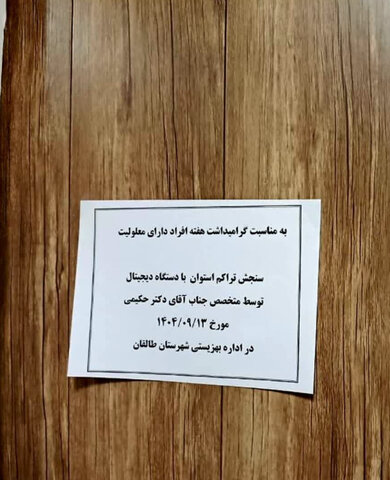 به مناسبت گرامیداشت هفته افراد دارای معلولیت
سنجش تراکم استوان با دستگاه دیجیتال
توسط متخصص جناب آقای دکتر حکیمی
مورخ ۱۴۰۴/۰۹/۱۳
در اداره بهزیستی شهرستان طالقان